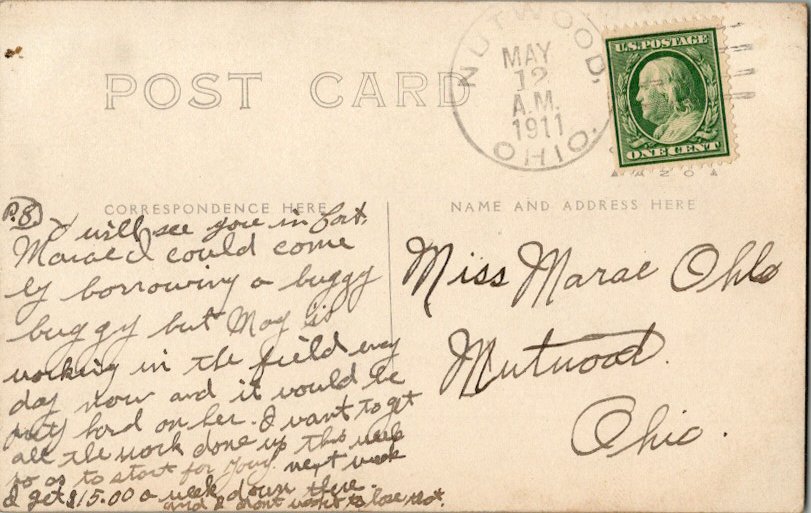 POST CARD
NUTWOOD, OHIO.
MAY
12
A.M.
1911
U.S. POSTAGE
ONE CENT
AZO
CORRESPONDENCE HERE
NAME AND ADDRESS HERE
P.8. I will see you in
Marae I could come
by borrowing a buggy
buggy but May is
working in the field evry
day now and it would be
prety hard on her. I want to get
all the work done up this week
so as to start for next week
I get $15.00 a week down there.
and I dont want to lose that.
Miss Marae Ohls
Nutwood.
Ohio.